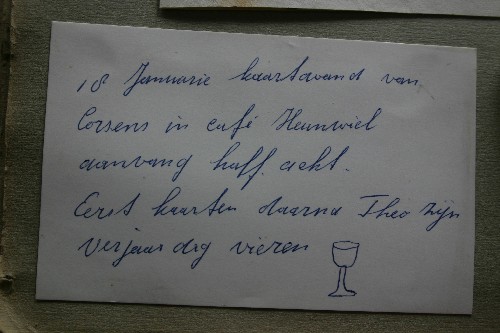 18 Januarie kaartavond van
Corsens in café Heunwiel
aanvang half acht.
Eerst kaarten daarna Theo zijn
Verjaardag vieren